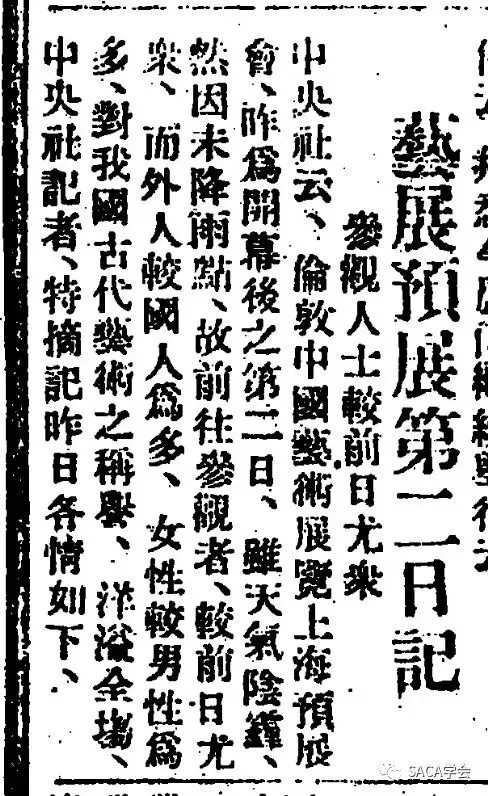 藝展預展第二日記
參觀人士較前日尤衆
中央社云、倫敦中國藝術展覽上海預展
會、昨爲開幕後之第二日、雖天氣陰霾、
然因未降雨點、故前往參觀者、較前日尤
衆、而外人較國人爲多、女性較男性爲
多、對我國古代藝術之稱譽、洋溢全場、
中央社記者、特摘記昨日各情如下、
SACA学会